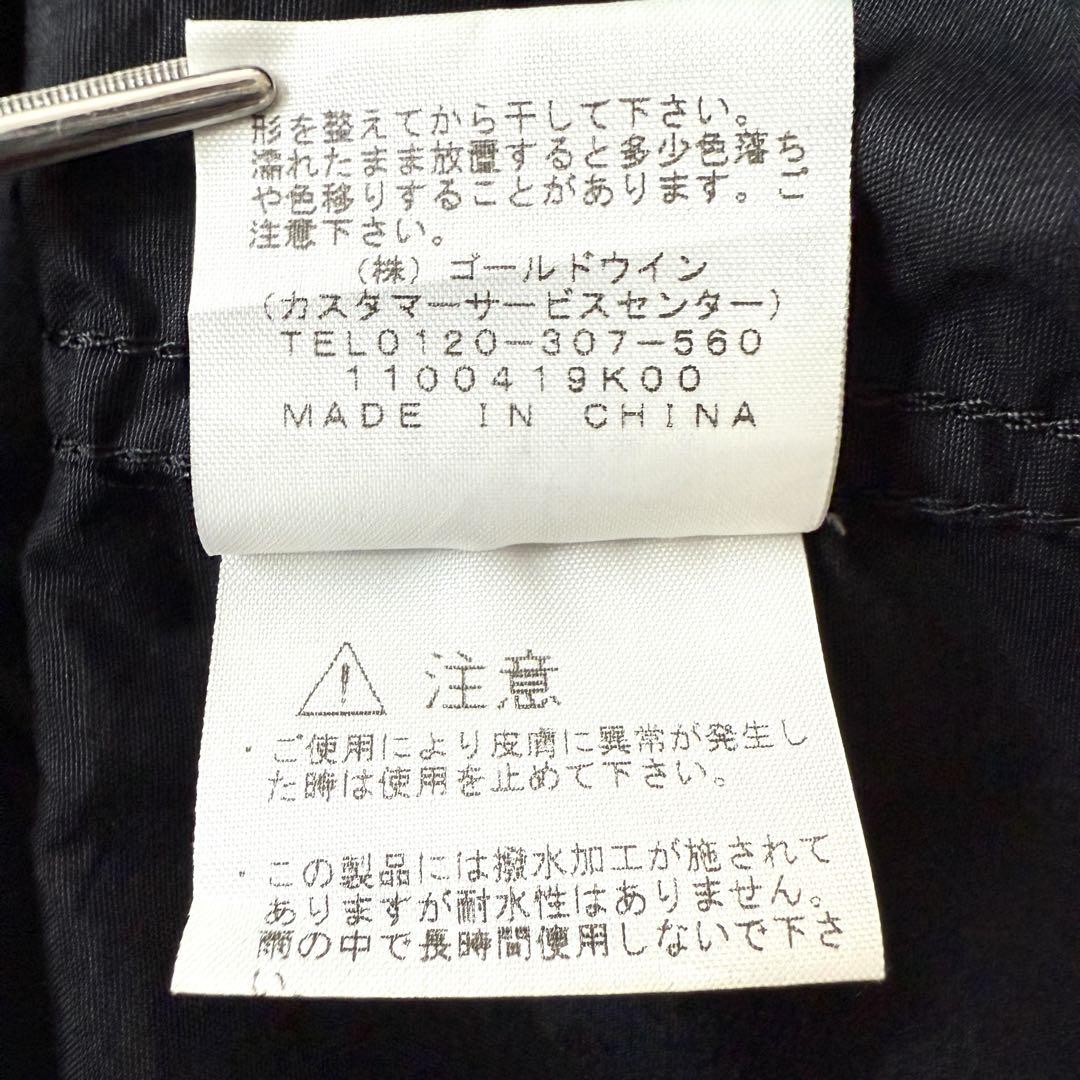 形を整えてから干して下さい。
濡れたまま放置すると多少色落ち
や色移りすることがあります。ご
注意下さい。
(株) ゴールドウイン
(カスタマーサービスセンター)
TEL0120-307-560
1100419K00
MADE IN CHINA
注意
・ご使用により皮膚に異常が発生し
た時は使用を止めて下さい。
・この製品には撥水加工が施されて
ありますが耐水性はありません。
雨の中で長時間使用しないで下さ
い